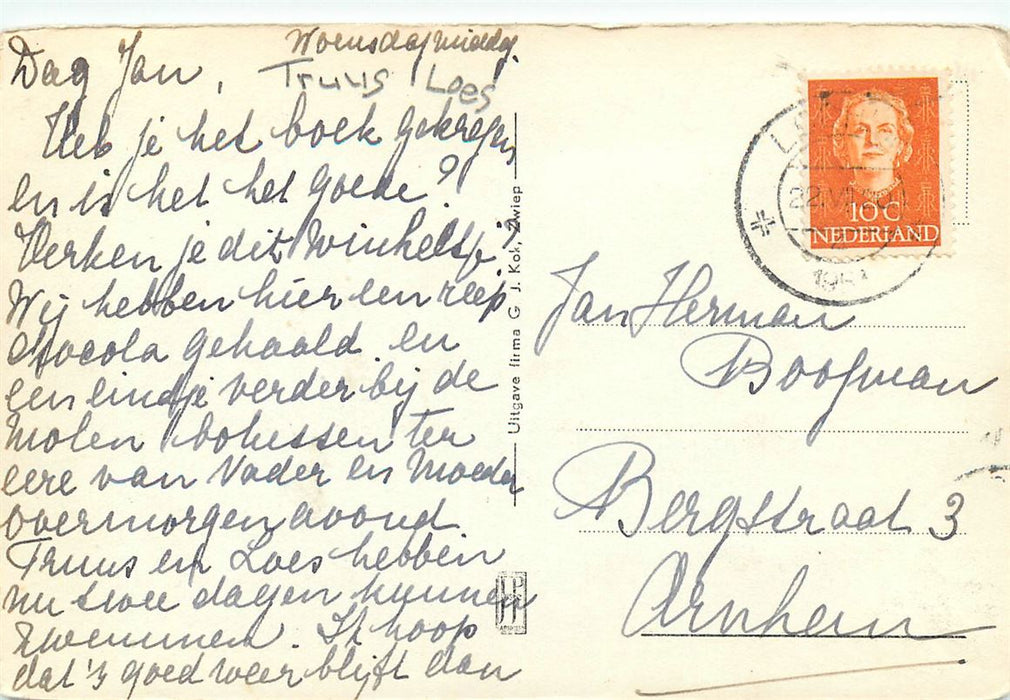 Woensdagmiddag.
Dag Jan,
Truus Loes
Heb je het boek gekregen
en is het het goede?
Herken je dit winkeltje?
Wij hebben hier een reep
chocola gehaald en
een eindje verder bij de
molen bohessen ter
eere van Vader en Moeder
overmorgen avond
Truus en Loes hebben
nu twee dagen kunnen
zwemmen. Ik hoop
dat 't goed weer blijft dan
Uitgave firma G. J. Kok, Zwiep
10 C
NEDERLAND
22.VII
Jan Herman
Boogman
Bergstraat 3
Arnhem